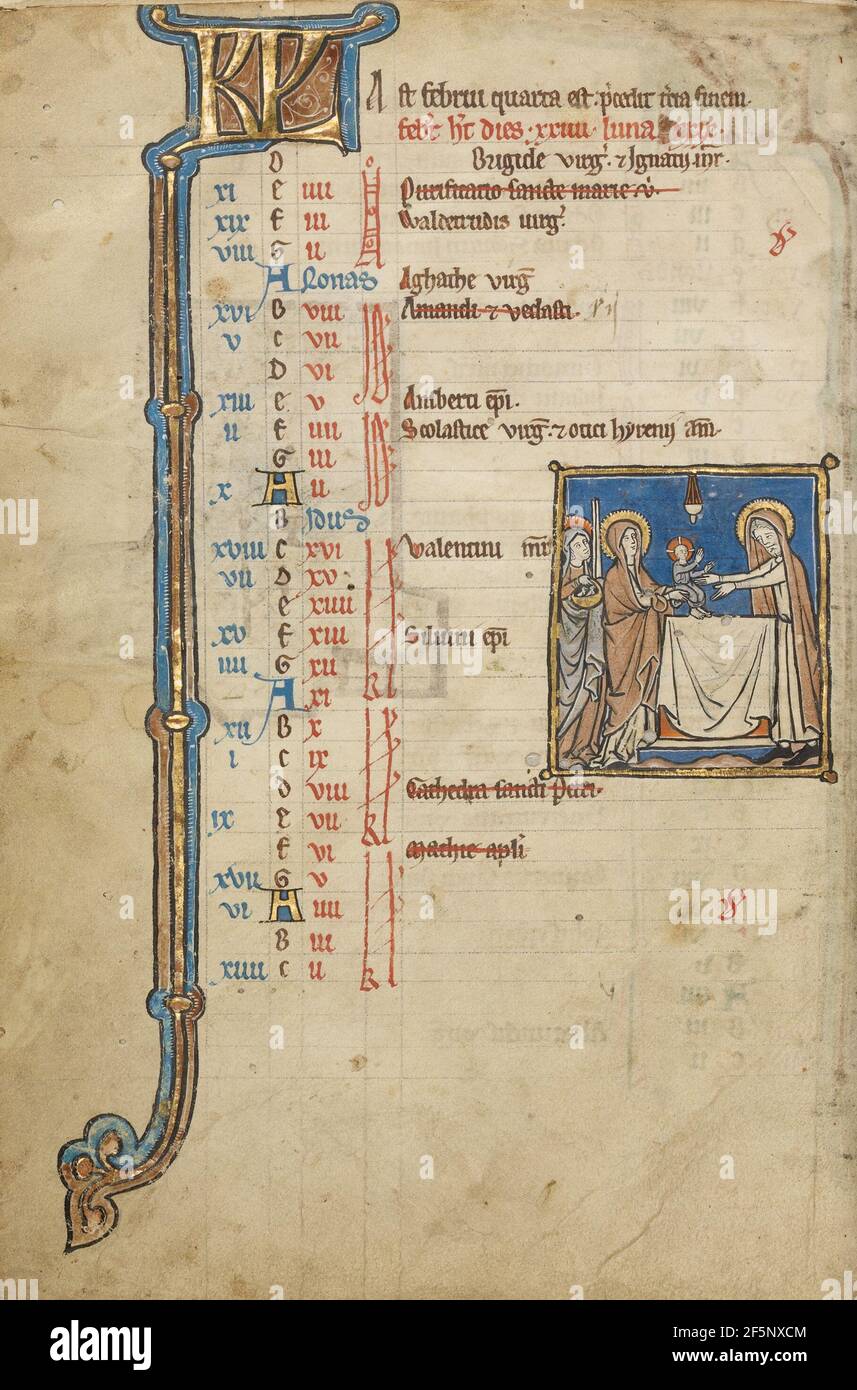 KL
A st februi quarta est. p̄cedit t̄cia finem.
feb͛ h̄t dies. xxviii. luna
Brigide virg͛. ⁊ Ignatii m̄r.
D
xi e iiii Purificatio sancte marie v̄.
xix f iii Waldetrudis uirg͛.
viii G ii
A Nonas Aghathe virg̅
xvi B viii Amandi ⁊ vedasti.
v c vii
D vi
xiii e v Auberti ep̄i.
ii f iiii Scolastice virg̅. ⁊ otici hyrenii am̄.
G iii
x A ii
B Idus
xviii C xvi Valentini m̄r
vii D xv
e xiiii
xv f xiii Siluini ep̄i
iiii G xii
A xi
xii B x
i c ix
D viii Cathedra sancti Petri.
ix e vii
f vi Mathie apl̄i
xvii G v
vi A iiii
B iii
xiiii c ii
a
alamy
Image ID: 2F5NXCM
www.alamy.com